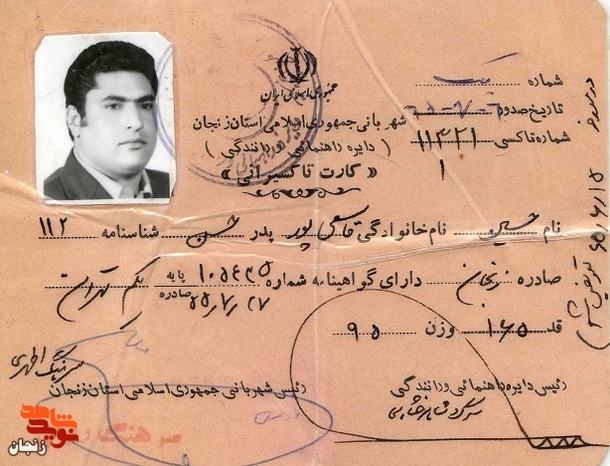 جمهوری اسلامی ایران
شهربانی جمهوری اسلامی استان زنجان
( دایره راهنمائی ورانندگی )
« کارت تاکسیرانی »
شماره یک
تاریخ صدور
شماره تاکسی ۱۱۳۲۱
۱
نام حسین نام خانوادگی قاسمی پور پدر حسن شناسنامه ۱۱۲
صادره زنجان دارای گواهینامه شماره ۱۰۵۴۳۵ پایه یکم تهران
صادره ۵۵/۷/۲۷
قد ۱۶۵ وزن ۹۵
رئیس دایره راهنمائی ورانندگی
رئیس شهربانی جمهوری اسلامی استان زنجان
سرهنگ اطهری
سرهنگ
نوید شاهد
زنجان